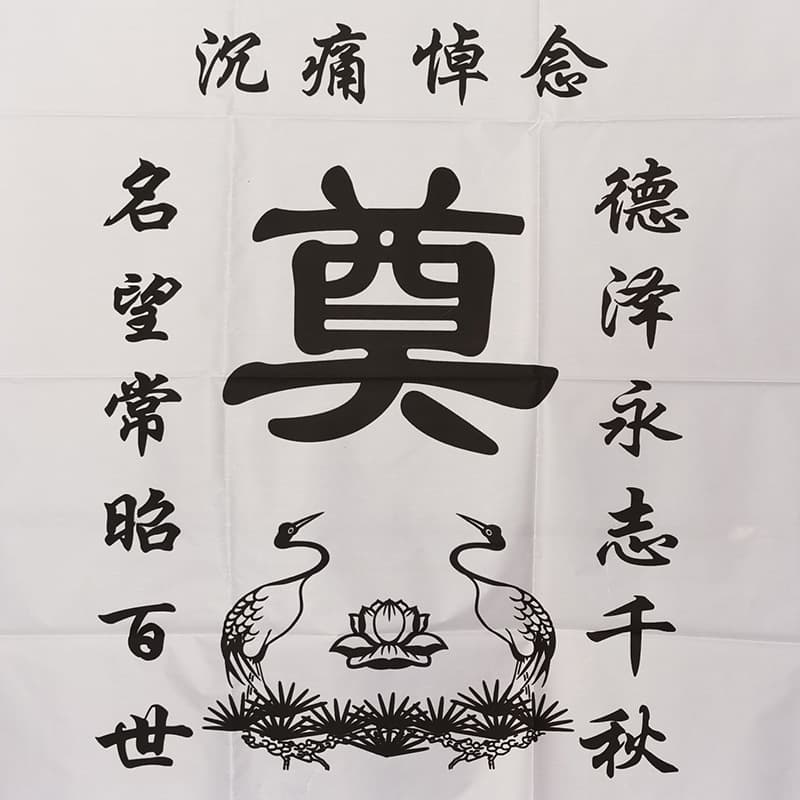 沉痛悼念
奠
德泽永志千秋
名望常昭百世